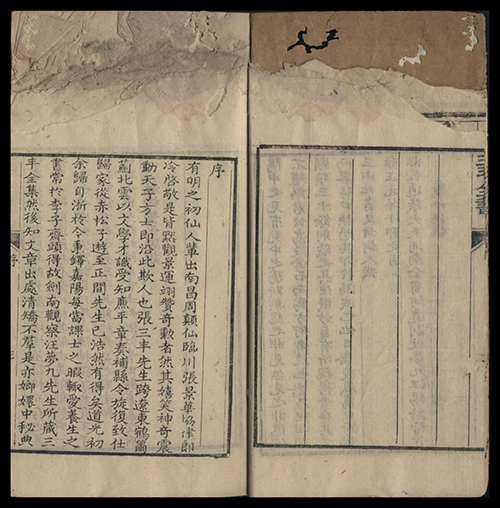 三丰全書
序
有明之初仙人輩出南昌周顛仙臨川張景華協律郎
冷啓敬是皆黙觀景運翊贊奇勳者然其嬉笑神奇震
動天子方士即沿此欺人也張三丰先生跨遼東鶴籋
薊北雲以文學才識受知亷平章奏補縣令旋復致仕
歸家從赤松子遊至正間先生已浩然有得矣道光初
余歸自浙於今秉鐸嘉陽每當課士之暇輙愛養生之
書常於李子齋頭得故劍南觀察汪夢九先生所藏三
丰全集然後知文章出處清矯不羣是亦嫏嬛中秘典
序